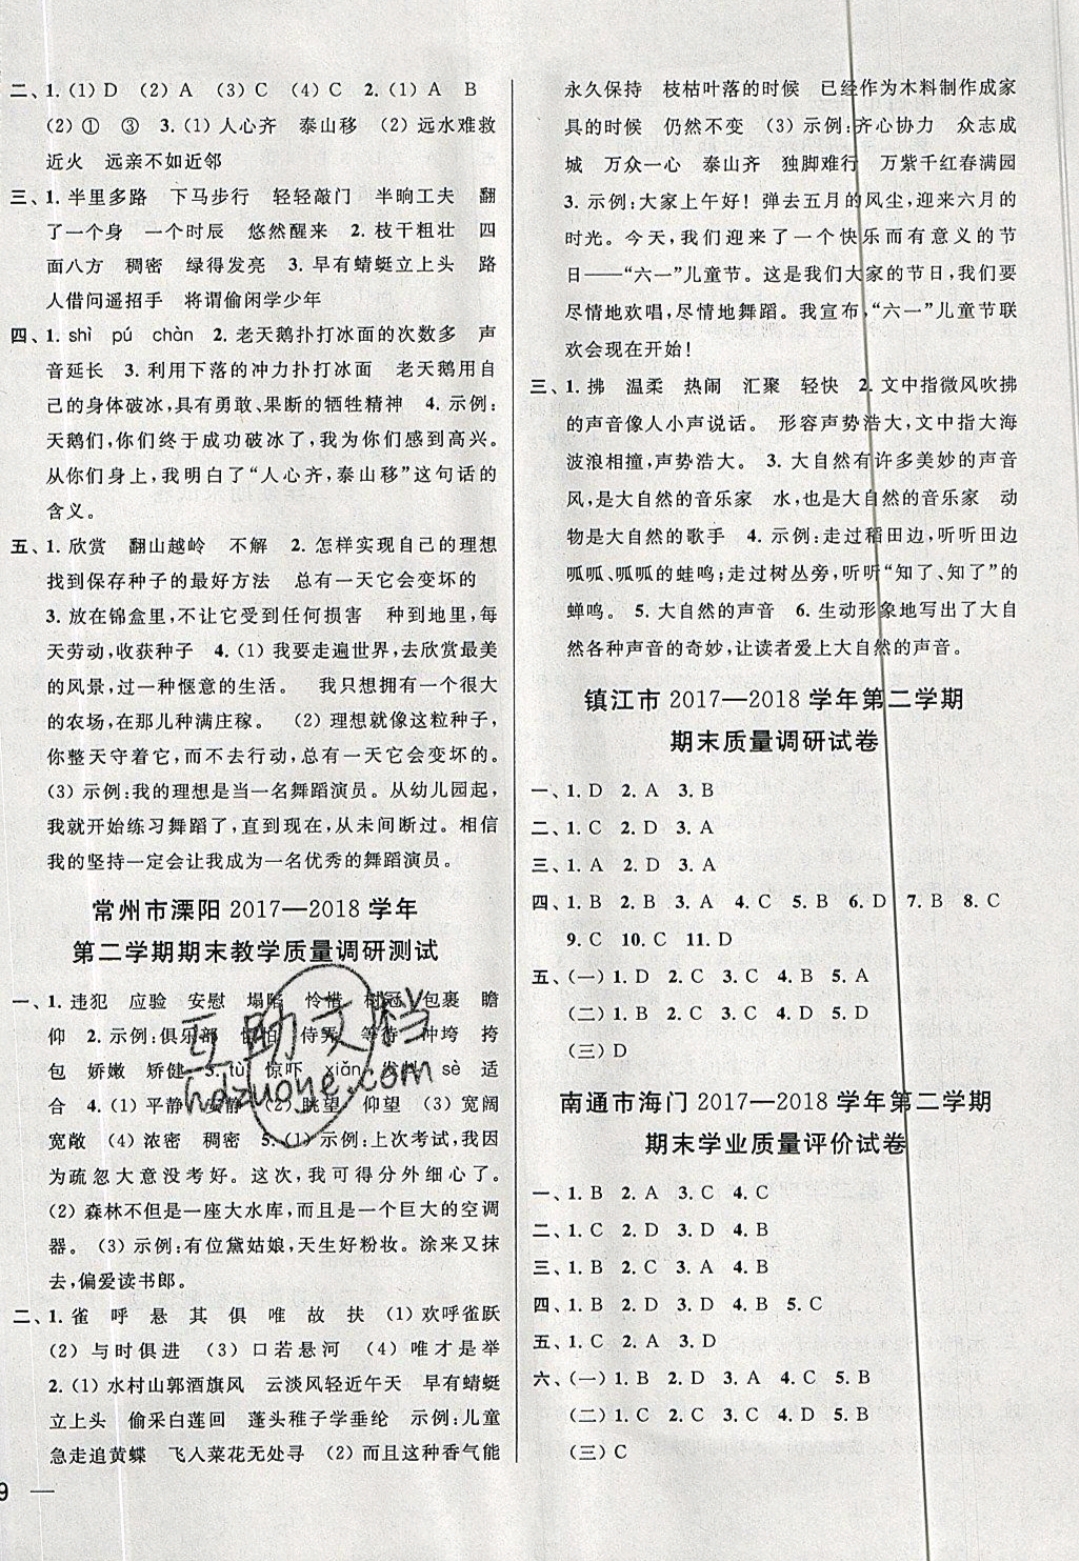 二、1. (1) D (2) A (3) C (4) C 2. (1) A B
(2) ① ③ 3. (1) 人心齐 泰山移 (2) 远水难救
近火 远亲不如近邻
三、1. 半里多路 下马步行 轻轻敲门 半晌工夫 翻
了一个身 一个时辰 悠然醒来 2. 枝干粗壮 四
面八方 稠密 绿得发亮 3. 早有蜻蜓立上头 路
人借问遥招手 将谓偷闲学少年
四、1. shì pú chàn 2. 老天鹅扑打冰面的次数多 声
音延长 3. 利用下落的冲力扑打冰面 老天鹅用自
己的身体破冰,具有勇敢、果断的牺牲精神 4. 示例:
天鹅们,你们终于成功破冰了,我为你们感到高兴。
从你们身上,我明白了“人心齐,泰山移”这句话的
含义。
五、1. 欣赏 翻山越岭 不解 2. 怎样实现自己的理想
找到保存种子的最好方法 总有一天它会变坏的
3. 放在锦盒里,不让它受到任何损害 种到地里,每
天劳动,收获种子 4. (1) 我要走遍世界,去欣赏最美
的风景,过一种惬意的生活。 我只想拥有一个很大
的农场,在那儿种满庄稼。 (2) 理想就像这粒种子,
你整天守着它,而不去行动,总有一天它会变坏的。
(3) 示例:我的理想是当一名舞蹈演员。从幼儿园起,
我就开始练习舞蹈了,直到现在,从未间断过。相信
我的坚持一定会让我成为一名优秀的舞蹈演员。
常州市溧阳 2017—2018 学年
第二学期期末教学质量调研测试
一、1. 违犯 应验 安慰 塌陷 怜惜 树冠 包裹 瞻
仰 2. 示例:俱乐部 惧怕 侍弄 等待 种垮 挎
包 娇嫩 矫健 3. tù 惊吓 xiǎn 发 sè 适
合 4. (1) 平静 安静 (2) 眺望 仰望 (3) 宽阔
宽敞 (4) 浓密 稠密 5. (1) 示例:上次考试,我因
为疏忽大意没考好。这次,我可得分外细心了。
(2) 森林不但是一座大水库,而且是一个巨大的空调
器。 (3) 示例:有位黛姑娘,天生好粉妆。涂来又抹
去,偏爱读书郎。
二、1. 雀 呼 悬 其 俱 唯 故 扶 (1) 欢呼雀跃
(2) 与时俱进 (3) 口若悬河 (4) 唯才是举
2. (1) 水村山郭酒旗风 云淡风轻近午天 早有蜻蜓
立上头 偷采白莲回 蓬头稚子学垂纶 示例:儿童
急走追黄蝶 飞入菜花无处寻 (2) 而且这种香气能
9 —
永久保持 枝枯叶落的时候 已经作为木料制作成家
具的时候 仍然不变 (3) 示例:齐心协力 众志成
城 万众一心 泰山齐 独脚难行 万紫千红春满园
3. 示例:大家上午好! 弹去五月的风尘,迎来六月的
时光。今天,我们迎来了一个快乐而有意义的节
日——“六一”儿童节。这是我们大家的节日,我们要
尽情地欢唱,尽情地舞蹈。我宣布,“六一”儿童节联
欢会现在开始!
三、1. 拂 温柔 热闹 汇聚 轻快 2. 文中指微风吹拂
的声音像人小声说话。 形容声势浩大,文中指大海
波浪相撞,声势浩大。 3. 大自然有许多美妙的声音
风,是大自然的音乐家 水,也是大自然的音乐家 动
物是大自然的歌手 4. 示例:走过稻田边,听听田边
呱呱、呱呱的蛙鸣;走过树丛旁,听听“知了、知了”的
蝉鸣。 5. 大自然的声音 6. 生动形象地写出了大自
然各种声音的奇妙,让读者爱上大自然的声音。
镇江市 2017—2018 学年第二学期
期末质量调研试卷
一、1. D 2. A 3. B
二、1. C 2. D 3. A
三、1. A 2. D 3. A
四、1. B 2. B 3. A 4. C 5. B 6. D 7. B 8. C
9. C 10. C 11. D
五、(一) 1. D 2. C 3. C 4. B 5. A
(二) 1. B 2. C 3. C 4. D 5. D
(三) D
南通市海门 2017—2018 学年第二学期
期末学业质量评价试卷
一、1. B 2. A 3. C 4. C
二、1. C 2. D 3. D 4. B
三、1. B 2. C 3. A 4. B
四、1. B 2. D 3. A 4. B 5. C
五、1. C 2. A 3. D
六、(一) 1. B 2. D 3. C 4. A 5. B
(二) 1. C 2. C 3. A 4. D 5. B
(三) C
互助文档
hdzuoye.com